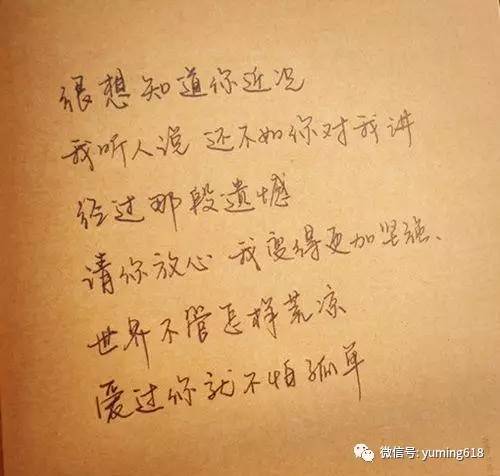 很想知道你近况
我听人说 还不如你对我讲
经过那段遗憾
请你放心 我变得更加坚强、
世界不管怎样荒凉
爱过你就不怕孤单
微信号: yuming618